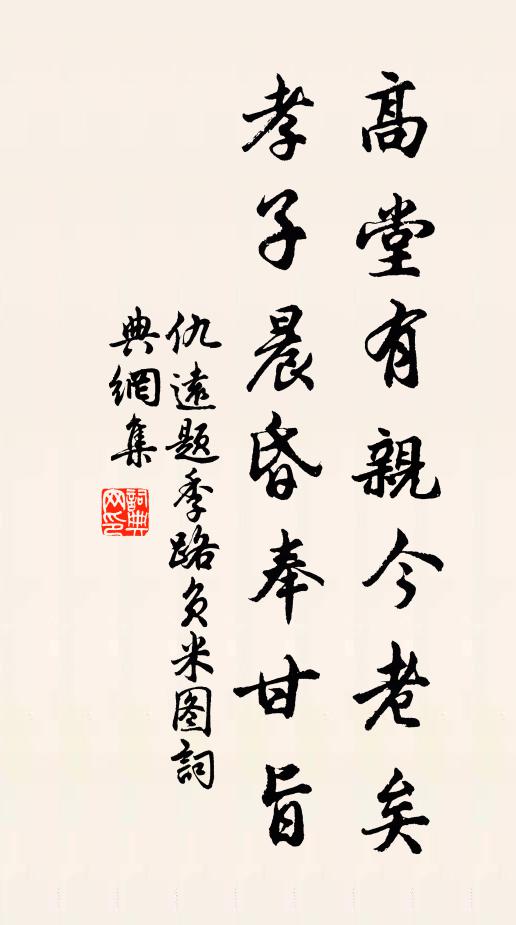 高堂有親今老矣
孝子晨昏奉甘旨
仇遠題季路負米图詞
典網集
詞典
网印